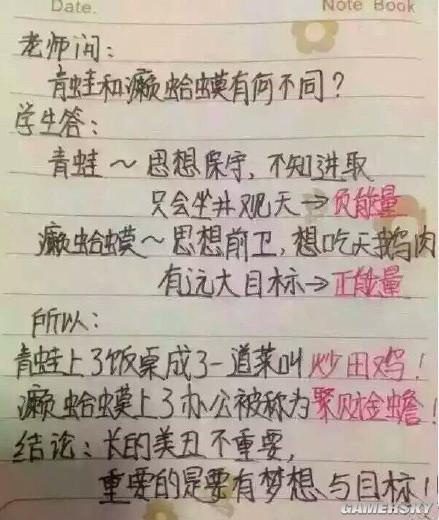 Date.
Note Book
老师问:
青蛙和癞蛤蟆有何不同?
学生答:
青蛙～思想保守,不知进取
只会坐井观天→负能量
癞蛤蟆～思想前卫,想吃天鹅肉
有远大目标→正能量
所以:
青蛙上了饭桌成了一道菜叫炒田鸡!
癞蛤蟆上了办公被称为聚财金蟾!
结论:长的美丑不重要,
重要的是要有梦想与目标!!
GAMERSKY